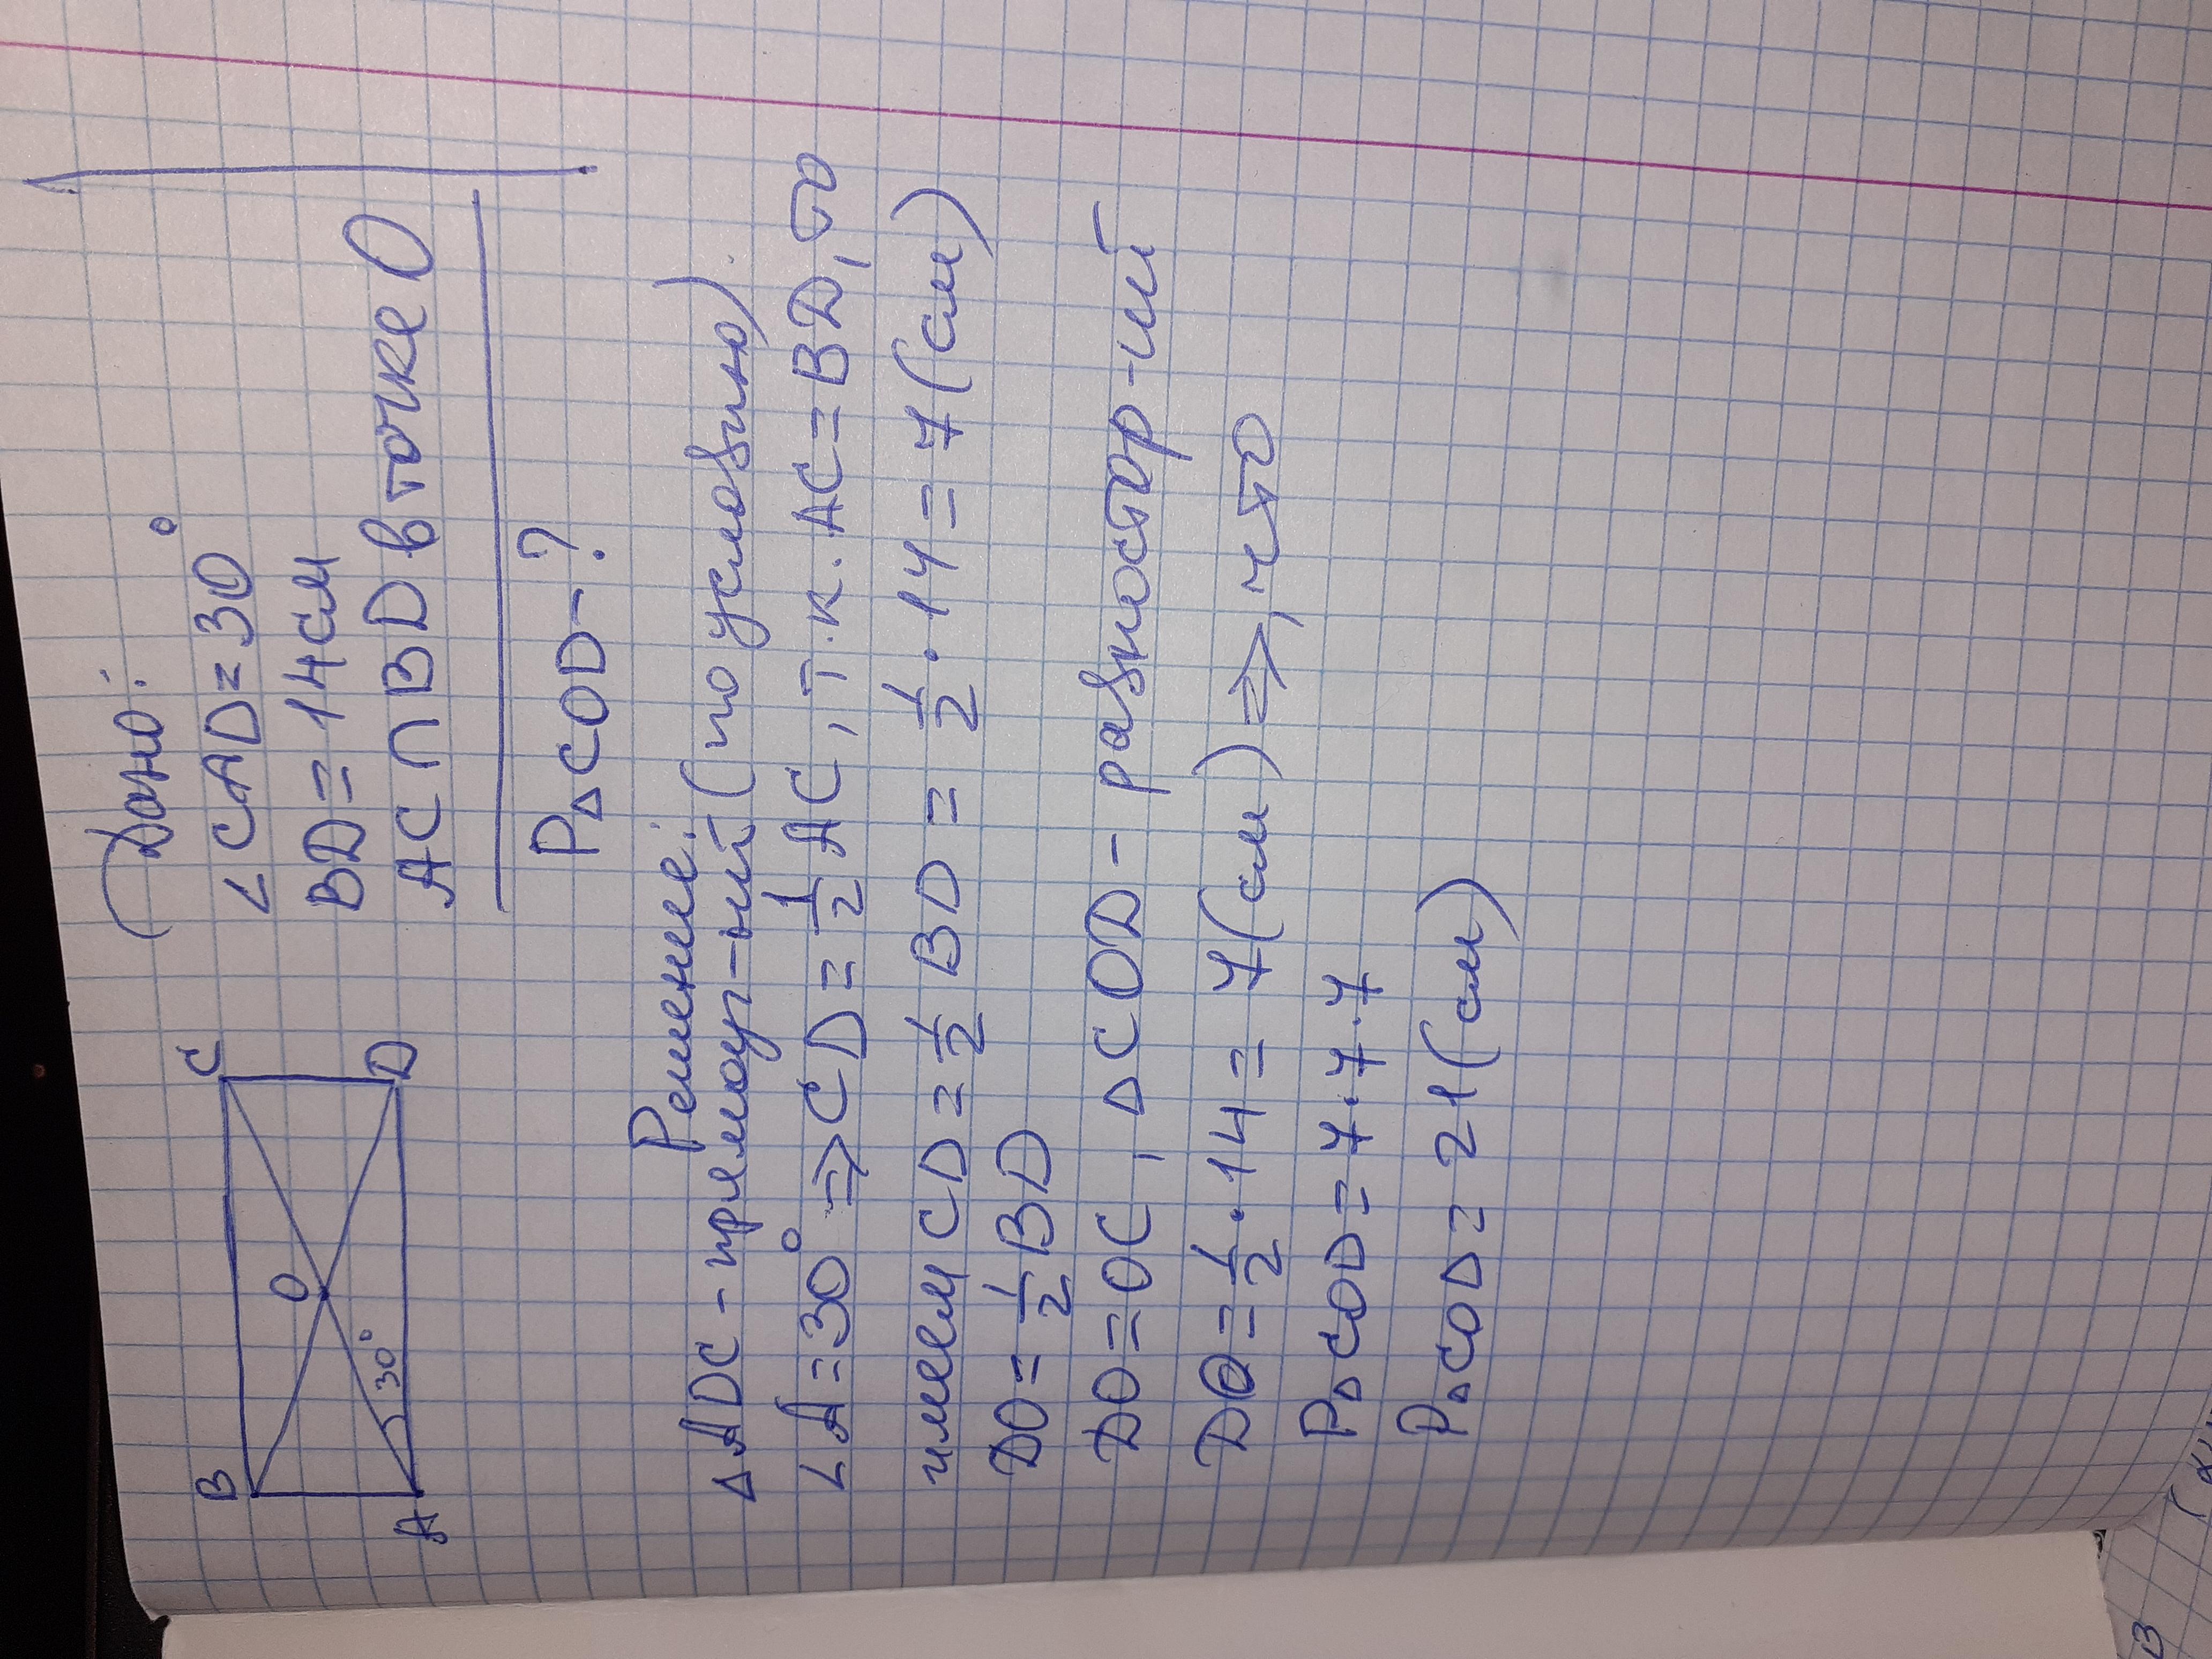 Дано:
∠CAD=30°
BD=14см
AC∩BD в точке O
P△COD-?
B
C
O
30°
A
D
Решение:
△ADC-прямоуг-ый(по условию).
∠A=30° ⇒ CD=1/2AC, т.к. AC=BD, то
имеем CD=1/2 BD = 1/2 · 14 = 7(см)
DO=1/2BD
DO=OC, △COD-равностор-ий
DO=1/2·14= 7(см) ⇒, что
P△COD=7·7·7
P△COD= 21(см)